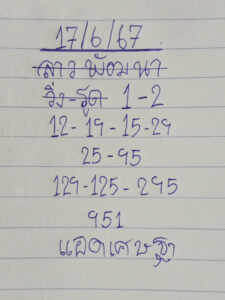 17/6/67
ลาว พัฒนา
วิ่ง-รูด 1-2
12-19-15-29
25-95
129-125-295
951
แอดเศษฐา